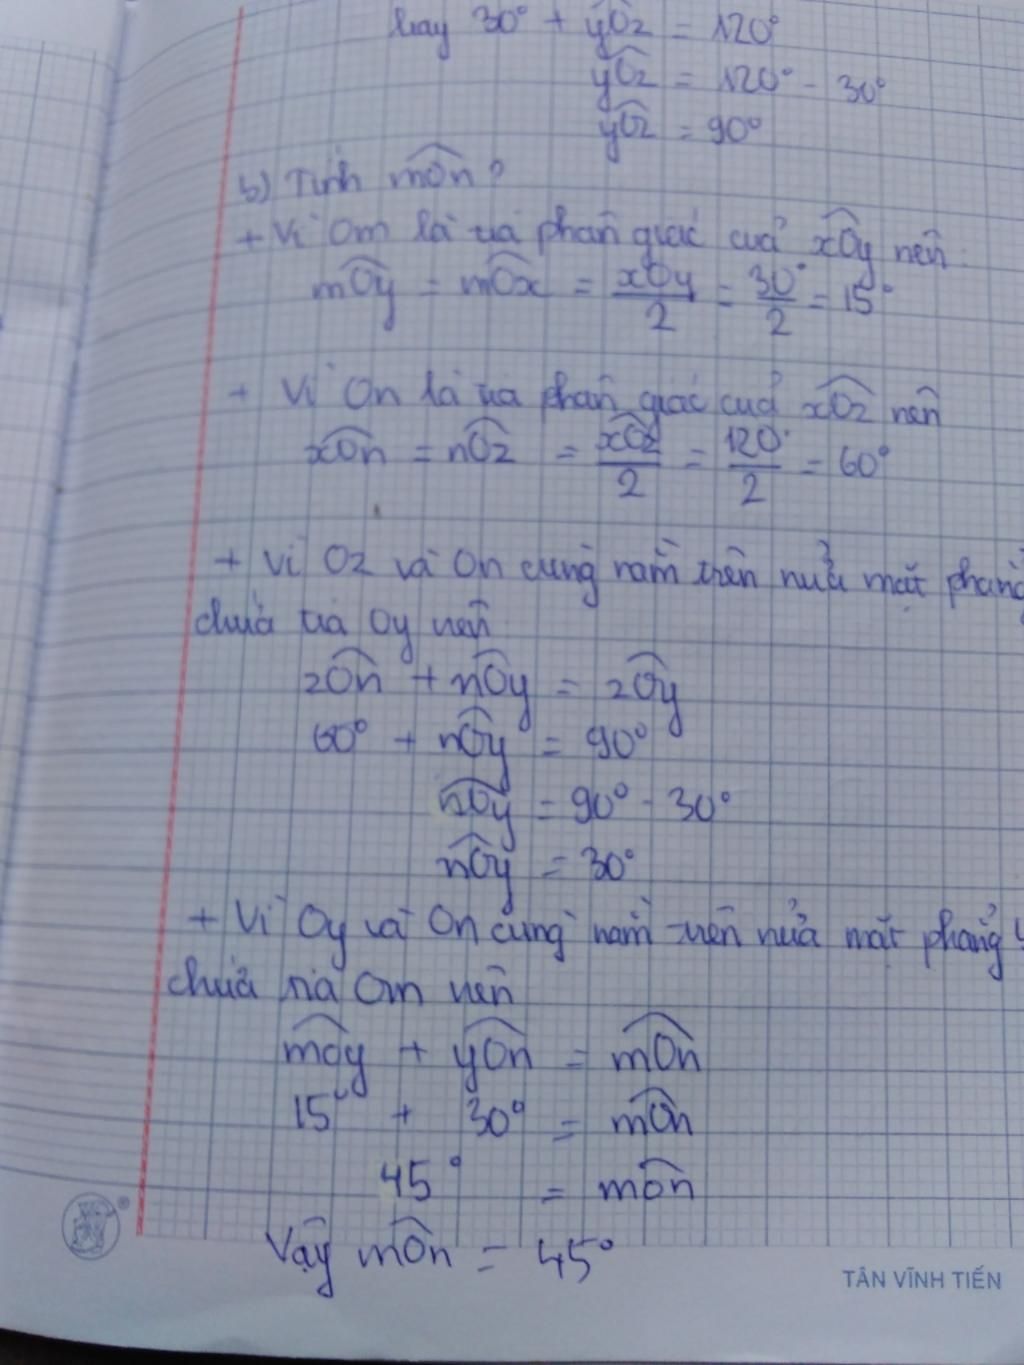 hay 30° + yOz = 120°
yOz = 120° - 30°
yOz = 90°
b) Tính mOn?
+ Vì Om là tia phân giác của xOy nên:
mOy = mOx = xOy/2 = 30°/2 = 15°
+ Vì On là tia phân giác của xOz nên
xOn = nOz = xOz/2 = 120°/2 = 60°
+ Vì Oz và On cùng nằm trên nửa mặt phẳng
chứa tia Oy nên
zOn + nOy = zOy
60° + nOy = 90°
nOy = 90° - 30°
nOy = 30°
+ Vì Oy và On cùng nằm trên nửa mặt phẳng
chứa tia Om nên
mOy + yOn = mOn
15° + 30° = mOn
45° = mOn
Vậy mOn = 45°
TÂN VĨNH TIẾN